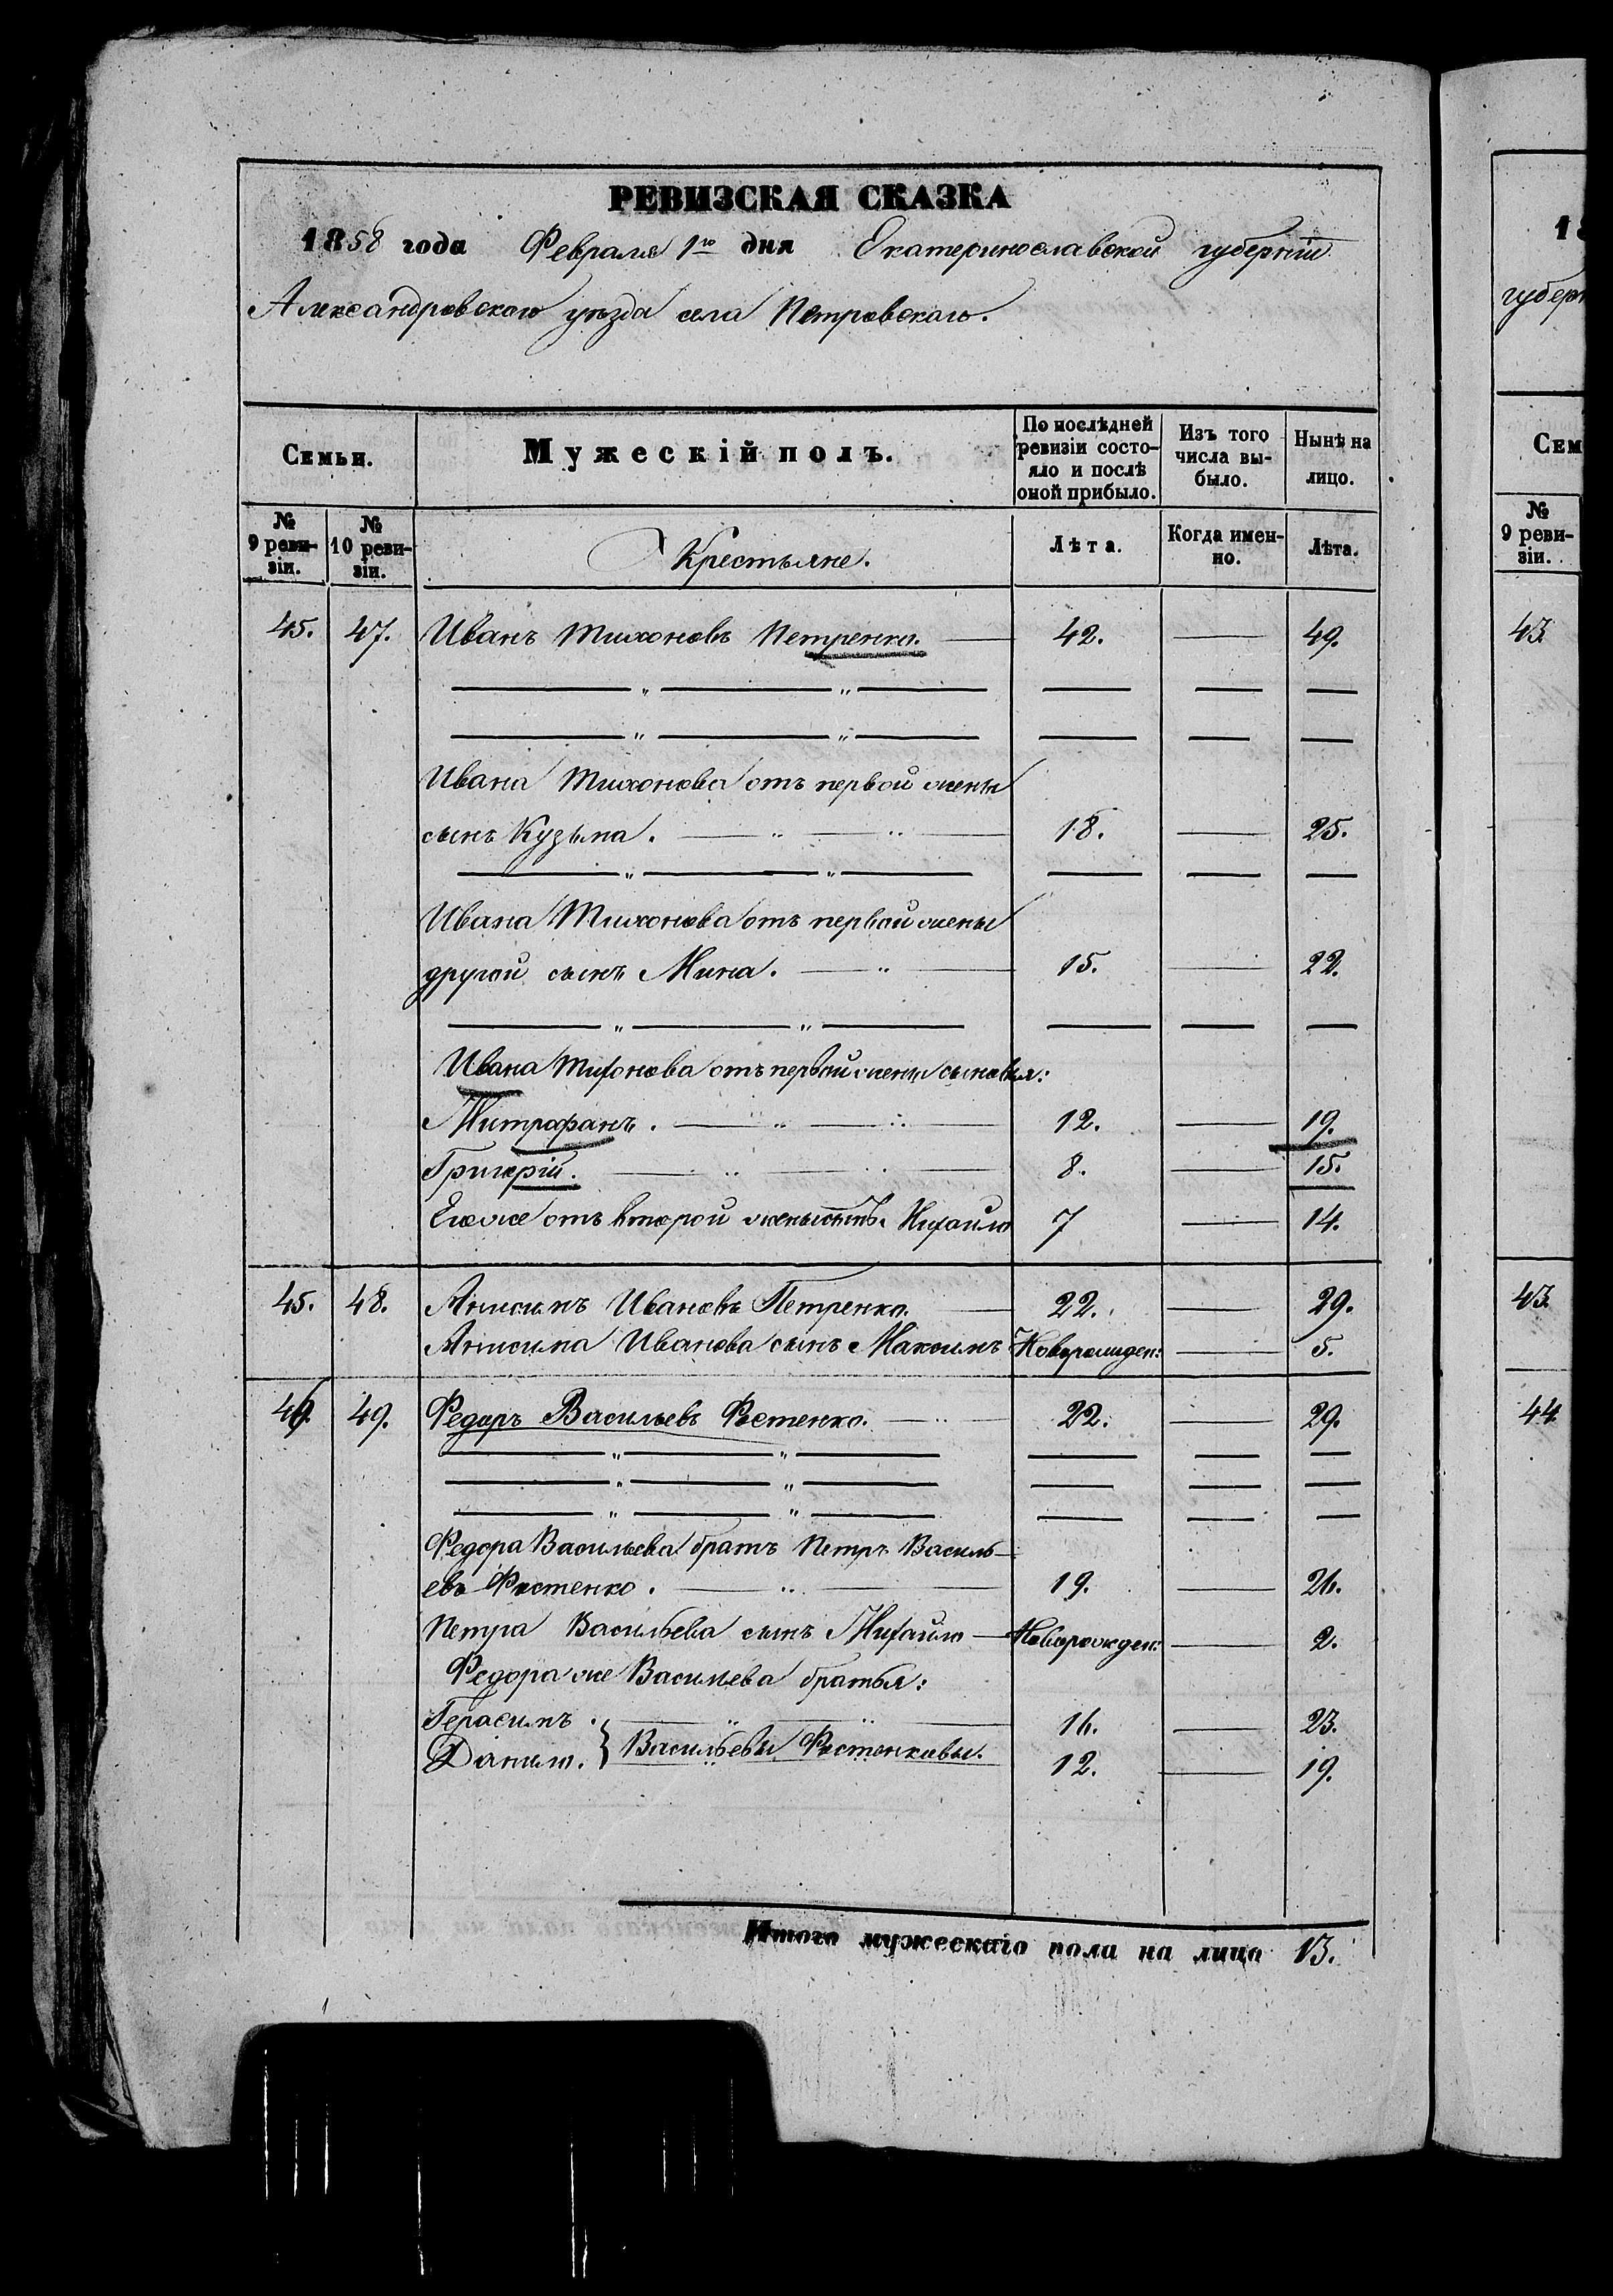 РЕВИЗСКАЯ СКАЗКА
1858 года Февраля 1го дня Екатеринославской губерніи
Александровскаго уѣзда села Петровскаго.
Семьи. Мужескій полъ. По послѣдней ревизіи состояло и послѣ оной прибыло. Изъ того числа выбыло. Нынѣ на лицо.
№ 9 ревизіи. № 10 ревизіи. Крестьяне. Лѣта. Когда именно. Лѣта.
45. 47. Иванъ Тихоновъ Петренко. 42. 49.
Ивана Тихонова отъ первой жены
сынъ Кузьма. 18. 25.
Ивана Тихонова отъ первой жены
другой сынъ Мина. 15. 22.
Ивана Тихонова отъ первой жены сыновья:
Митрофанъ. 12. 19.
Григорій. 8. 15.
Егоже отъ второй жены сынъ. Михайло 7 14.
45. 48. Анисимъ Ивановъ Петренко. 22. 29.
Анисима Иванова сынъ Максимъ Новорожден: 5.
46. 49. Федоръ Васильевъ Фостенко. 22. 29.
Федора Васильева братъ Петръ Василь-
евъ Фостенко. 19. 26.
Петра Васильева сынъ Михайло Новорожден: 2.
Федора же Васильева братья:
Герасимъ. 16. 23.
Данило. } Васильевы Фостенковы. 12. 19.
Итого мужескаго пола на лицо 13.
18
губерн
Сем
№
9 реви-
зіи.
43.
43.
44.